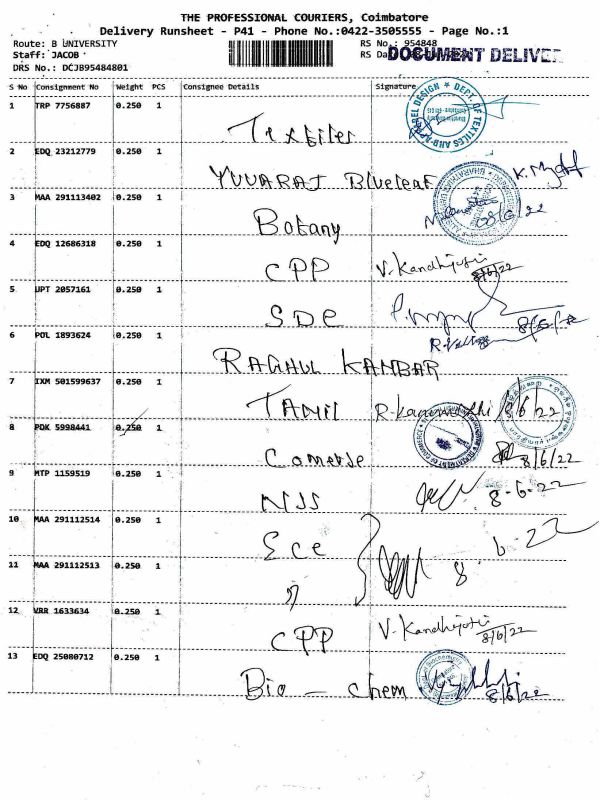 THE PROFESSIONAL COURIERS, Coimbatore
Delivery Runsheet - P41 - Phone No.:0422-3505555 - Page No.:1
Route: B UNIVERSITY
RS No.: 954848
Staff: JACOB
RS Da
DOCUMENT DELIVE
DRS No.: DCJB95484801
S No Consignment No Weight PCS Consignee Details Signature
1 TRP 7756887 0.250 1
Textiles
DEPT. OF TEXTILES AND APPAREL DESIGN
2 EDQ 23212779 0.250 1
YUVARAJ Blueleaf
3 MAA 291113402 0.250 1
Botany
08/6/22
4 EDQ 12686318 0.250 1
CPP V. Kandhijothi
8/6/22
5 UPT 2057161 0.250 1
SDE
6 POL 1893624 0.250 1
RAGHUL KANBAR
7 IXM 501599637 0.250 1
TAMIL 8/6/22
8 PDK 5998441 0.250 1
Comerse 8/6/22
DEPARTMENT OF COMMERCE
9 MTP 1159519 0.250 1
NSS 8-6-22
10 MAA 291112514 0.250 1
Sce 8-6-22
11 MAA 291112513 0.250 1
"
12 VRR 1633634 0.250 1
CPP V. Kandhijothi
8/6/22
13 EDQ 25080712 0.250 1
Bio - chem 8/6/22